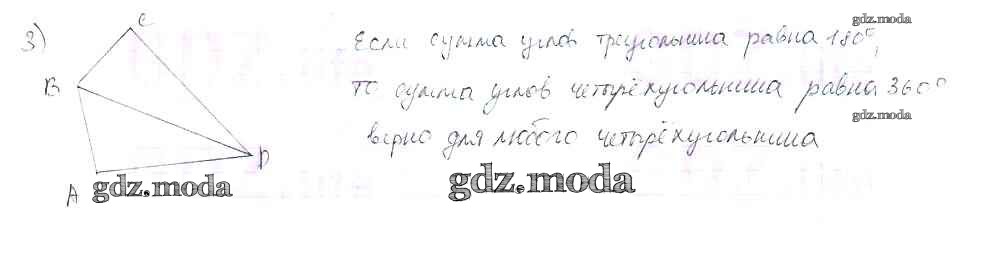 3)
C
B
D
A
Если сумма углов треугольника равна 180°,
то сумма углов четырёхугольника равна 360°
верно для любого четырёхугольника
gdz.moda
gdz.moda
gdz.moda
gdz.moda